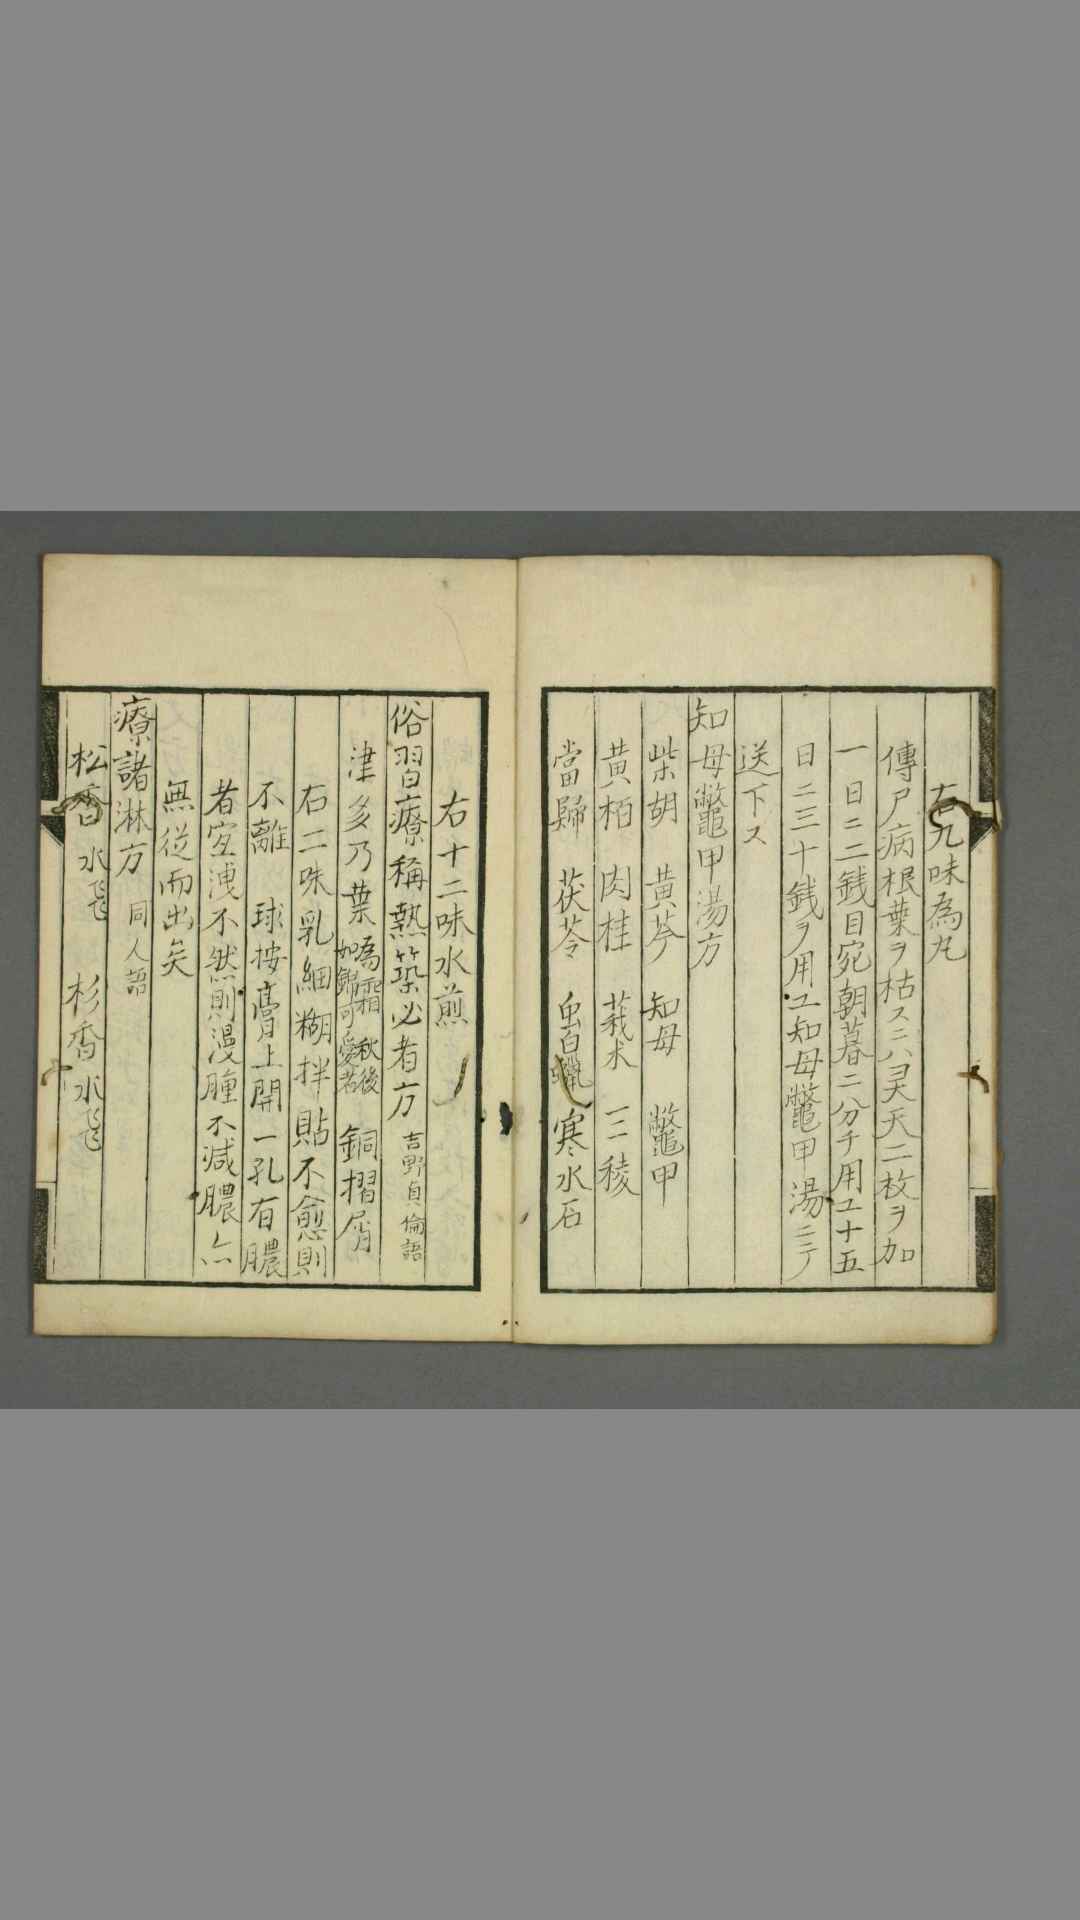 右九味為丸
傳尸病根葉ヲ枯スニハ昊天二枚ヲ加
一日ニ二銭目宛朝暮ニ分チ用ユ十五
日ニ三十銭ヲ用ユ知母鼈甲湯ニテ
送下ス
知母鼈甲湯方
柴胡 黄芩 知母 鼈甲
黄栢 肉桂 莪朮 三稜
當歸 茯苓 虫白蝋 寒水石
右十二味水煎
俗習療稱熱築必者方 吉野貞倫語
津多乃葉 為霜 秋後如錦可愛者 銅摺屑
右二味乳細糊拌貼不愈則
不離 球按膏上開一孔有膿
者宜洩不然則漫腫不減膿亦
無従而出矣
療諸淋方 同人語
松香水飛 杉香水飛